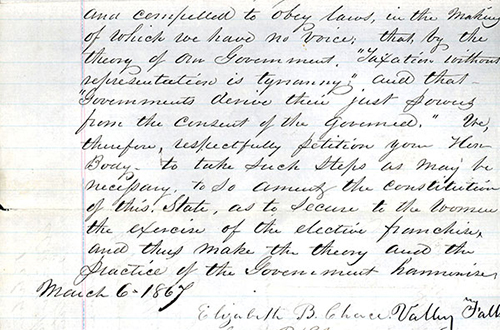 and compelled to obey laws, in the making
of which we have no voice; that by the
theory of our Government, "Taxation without
representation is tyranny", and that
"Governments derive their just powers
from the consent of the Governed." We,
therefore, respectfully petition your Hon
Body - to take such steps as may be
necessary, to so amend the constitution
of this State, as to secure to the Women
the exercise of the elective franchise,
and thus make the theory and the
practice of the Government harmonize
March 6 - 1867
Elizabeth B. Chace. Valley Fall